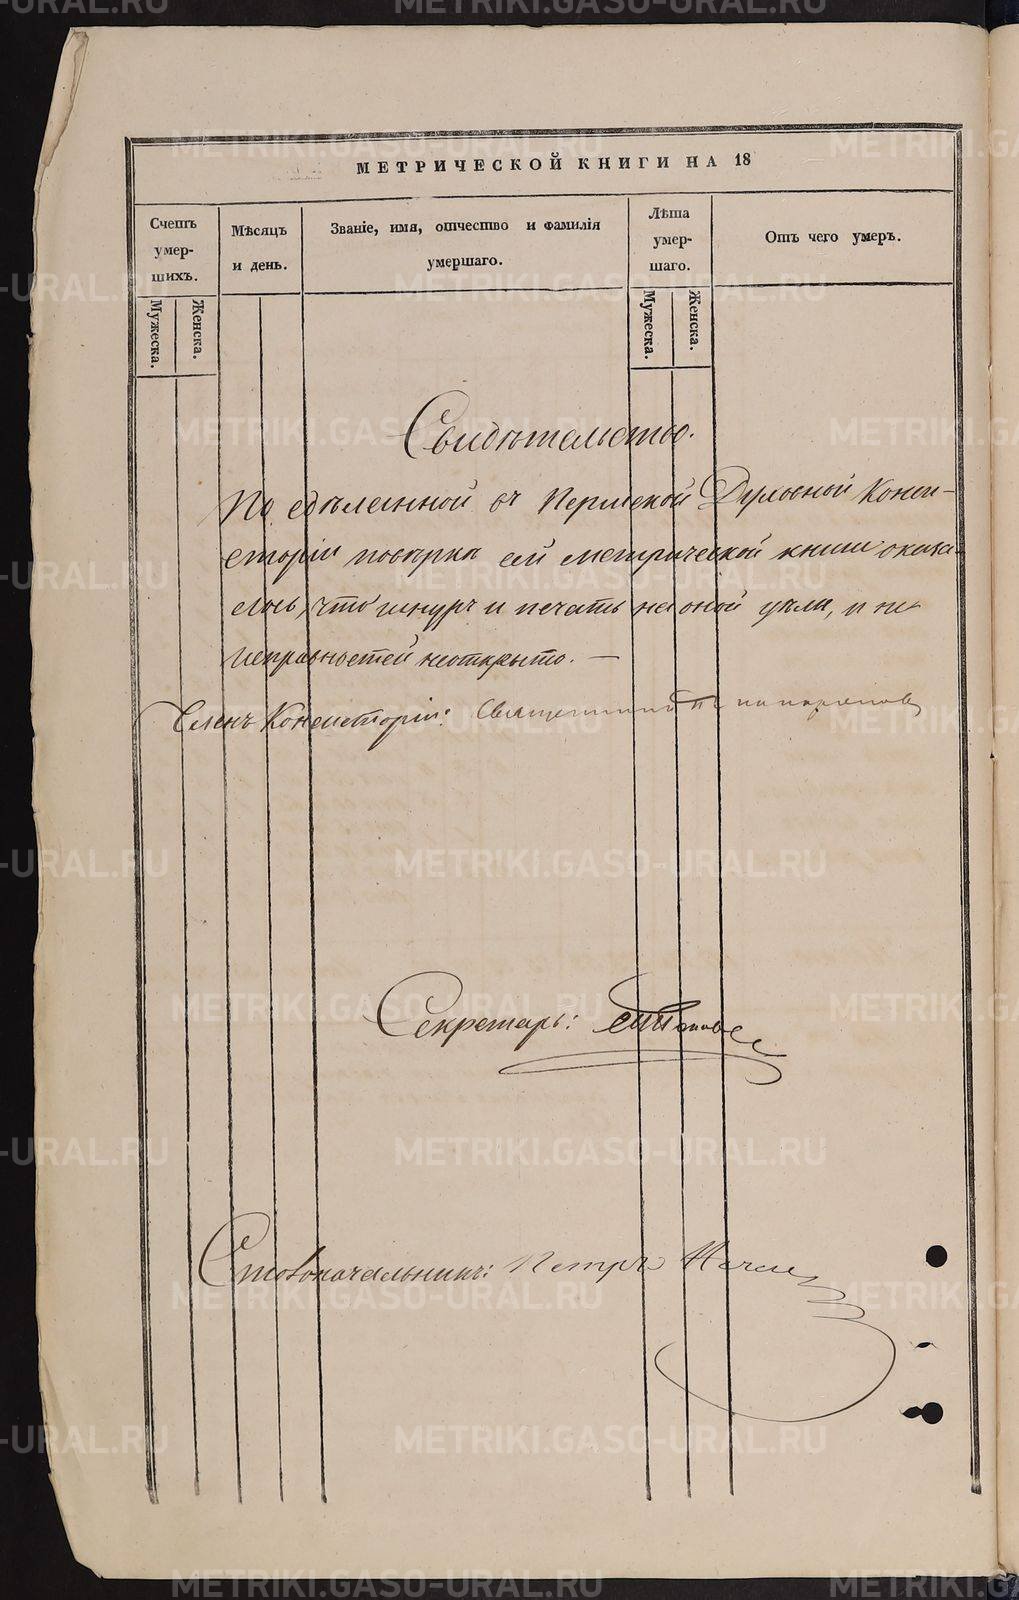 МЕТРИЧЕСКОЙ КНИГИ НА 18
Счетъ умер- шихъ.
Мужеска.
Женска.
Мѣсяцъ и день.
Званіе, имя, отчество и фамилія умершаго.
Лѣта умер- шаго.
Мужеска.
Женска.
Отъ чего умеръ.
Свидѣтельство.
По сдѣланной въ Пермской Духовной Конси-
сторіи повѣркѣ сей метрической книги оказа-
лось, что шнуръ и печать на оной цѣлы, и не
исправностей неоткрыто. —
Членъ Консисторіи: Священникъ
Секретарь: Поповъ
Столоначальникъ: Петръ
METRIKI.GASO-URAL.RU